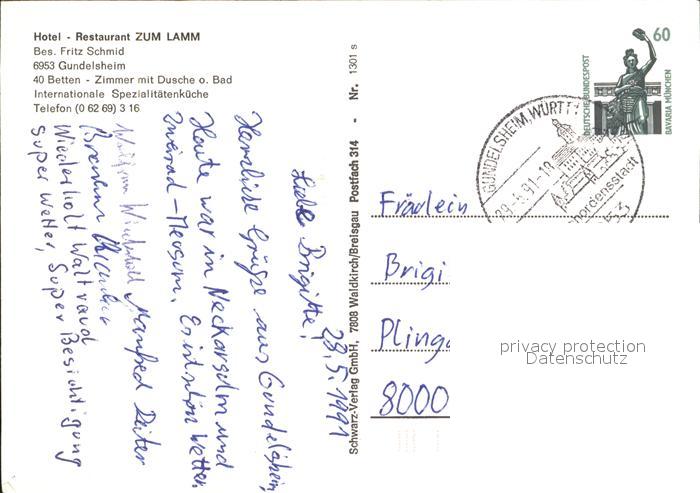 Hotel - Restaurant ZUM LAMM
Bes. Fritz Schmid
6953 Gundelsheim
40 Betten - Zimmer mit Dusche o. Bad
Internationale Spezialitätenküche
Telefon (0 62 69) 3 16
23.5.1991
Liebe Brigitte,
Herzliche Grüße aus Gundelsheim
Heute war in Neckarsulm und
Zweirad-Museum. Es ist schön Wetter.
Manfred Dieter
Wiederholt Waltraud
Super Wetter, Super Besichtigung
Schwarz-Verlag GmbH, 7808 Waldkirch/Breisgau Postfach 314 - Nr. 1301 s
60
DEUTSCHE BUNDESPOST
BAVARIA MÜNCHEN
GUNDELSHEIM, WÜRTT
Fräulein
Brigi
Pling
8000
privacy protection
Datenschutz